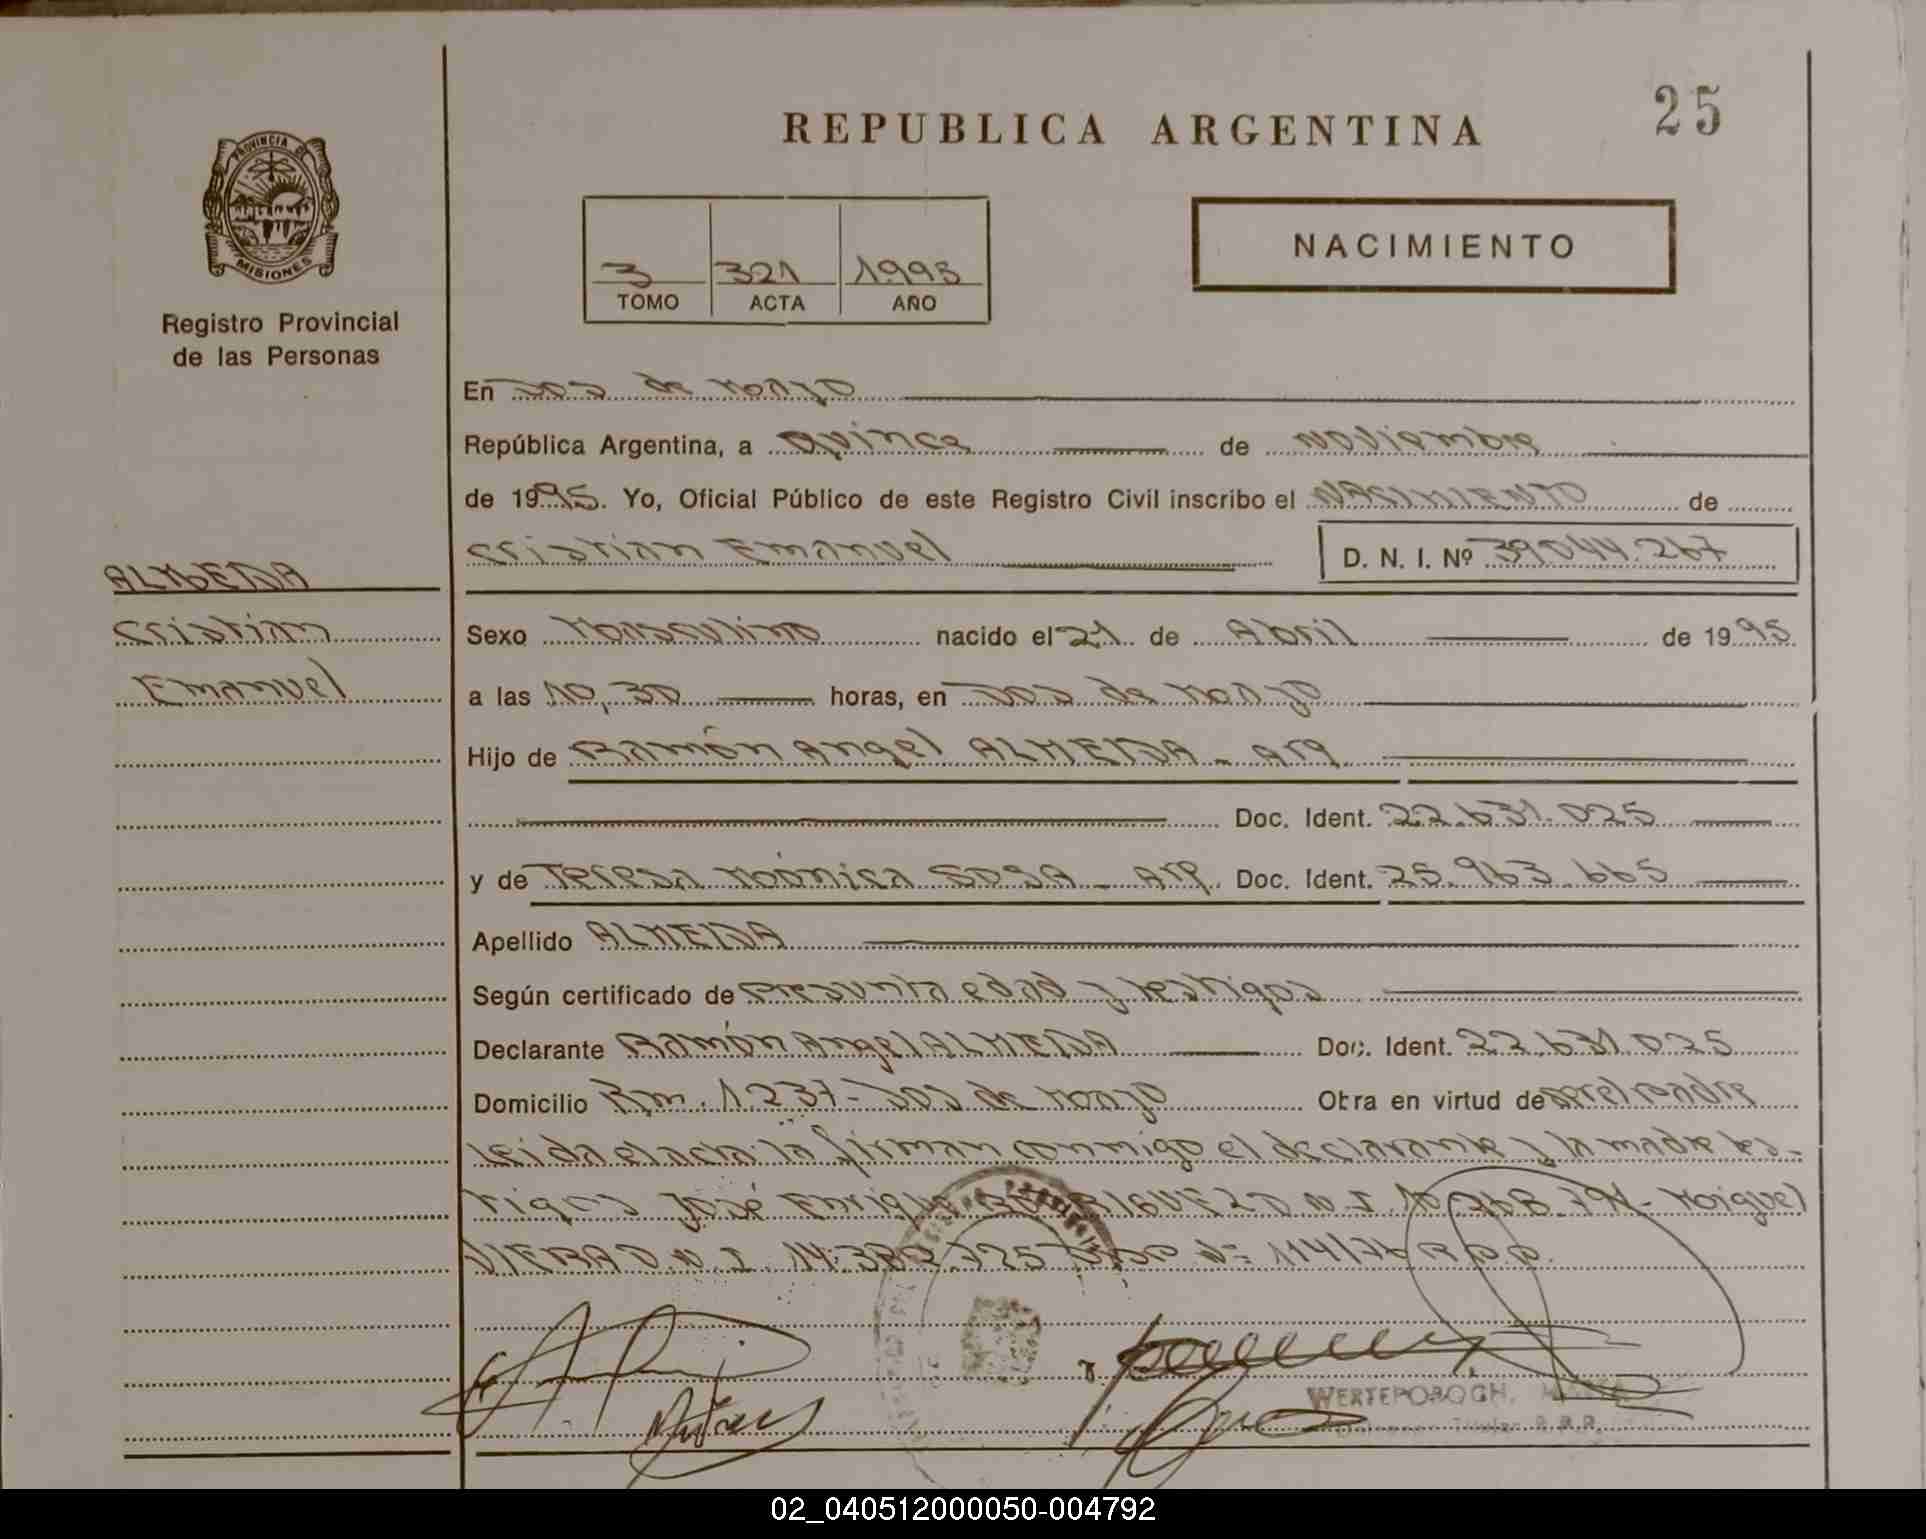 25
REPUBLICA ARGENTINA
PROVINCIA DE
MISIONES
Registro Provincial
de las Personas
3 321 1995
TOMO ACTA AÑO
NACIMIENTO
En Dos de Mayo
República Argentina, a Quince de Noviembre
de 1995. Yo, Oficial Público de este Registro Civil inscribo el NACIMIENTO de
Cristian Emanuel D. N. I. Nº 39044.267
ALMEIDA
Cristian
Emanuel
Sexo Masculino nacido el 21 de Abril de 1995
a las 10,30 horas, en Dos de Mayo
Hijo de Ramón Angel ALMEIDA - Arg.
Doc. Ident. 22.631.025
y de Teresa Mónica SOSA - Arg. Doc. Ident. 25.963.665
Apellido ALMEIDA
Según certificado de Presunta edad y testigos
Declarante Ramón Angel ALMEIDA Doc. Ident. 22.631.025
Domicilio Km. 1.237 - Dos de Mayo Obra en virtud de ser el padre
Leida el acta la firman conmigo el declarante y la madre tes-
tigos José Enrique D.N.I. Miguel
VIERA D.N.I.
02_040512000050-004792